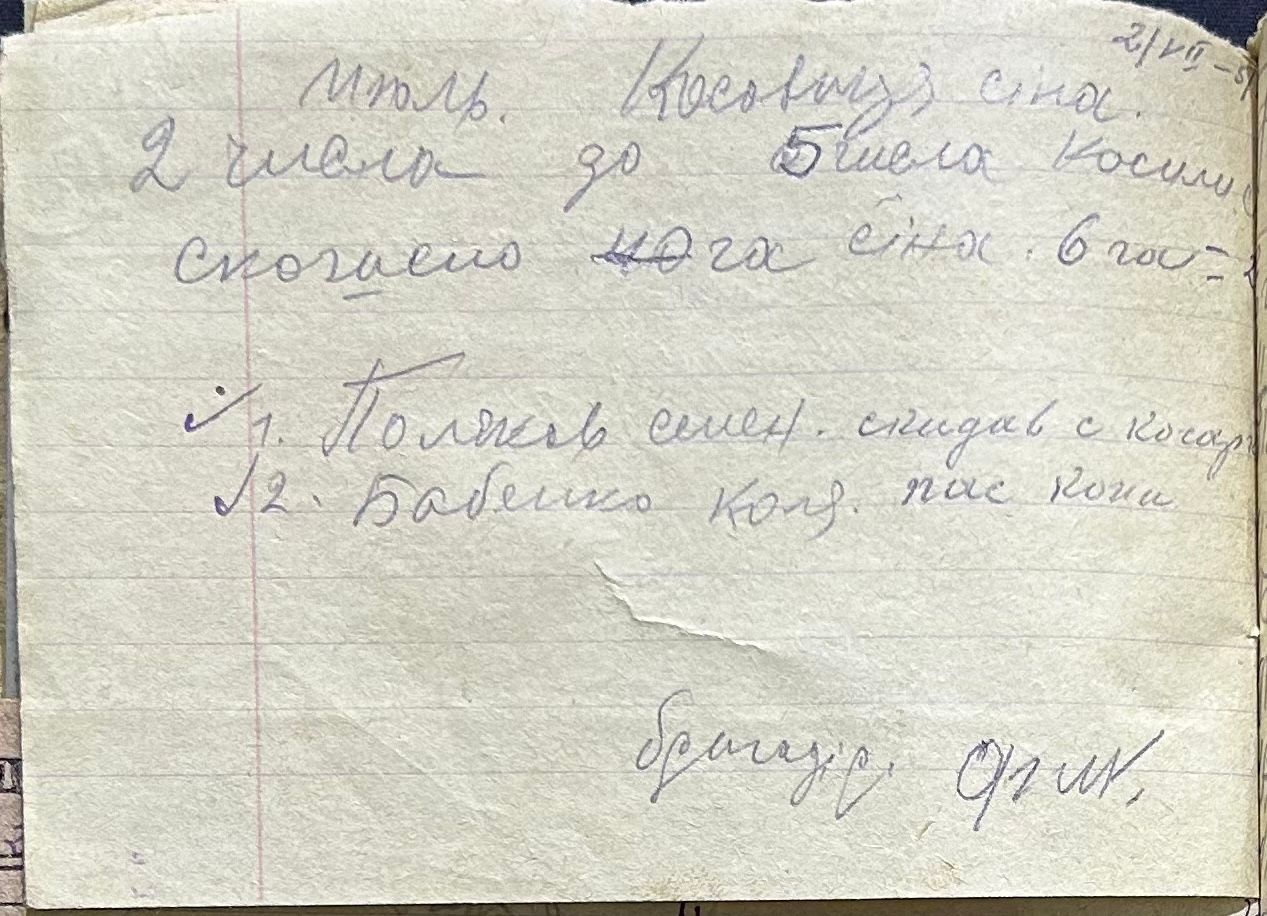 2/VII
июль. Косовиця сіна.
2 числа до 5 числа Косили
скогасио га сіна. 6 га =
1. Поляков семен. скидав с косар
2. Бабенко Коля. пас кони
бригадір.